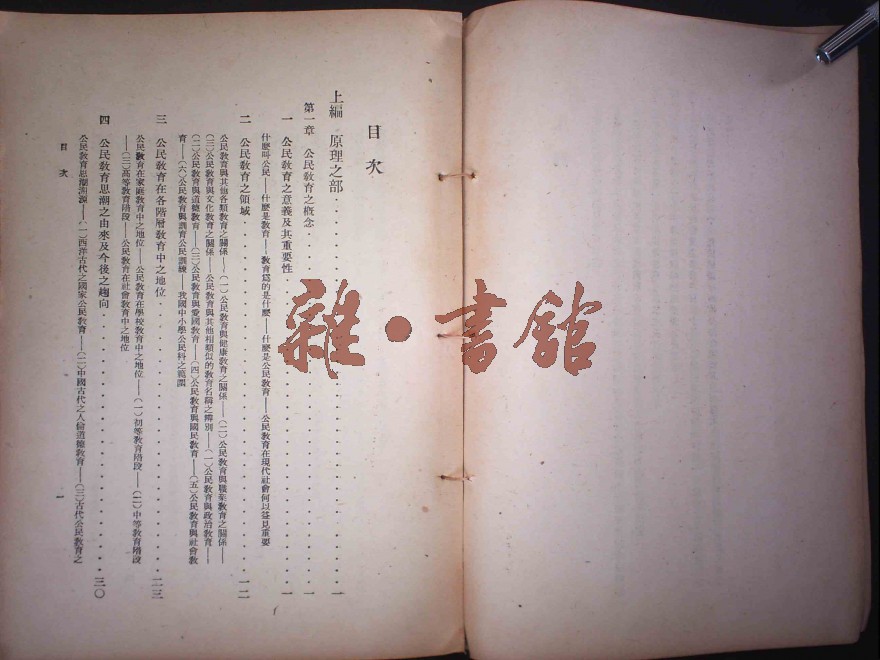 目次
上編　原理之部．．．．．．．．．．．．．．．．．．．．．．．．．．．．．．一
第一章　公民敎育之概念．．．．．．．．．．．．．．．．．．．．．．．．．一
一　公民敎育之意義及其重要性．．．．．．．．．．．．．．．．．．．．．．一
什麼叫公民——什麼是敎育——敎育爲的是什麼——什麼是公民敎育——公民敎育在現代社會何以益見重要
二　公民敎育之領域．．．．．．．．．．．．．．．．．．．．．．．．．．一二
公民敎育與其他各類敎育之關係——（一）公民敎育與健康敎育之關係——（二）公民敎育與職業敎育之關係——
（三）公民敎育與文化敎育之關係——公民敎育與其他相類似的敎育名稱之辨別——（一）公民敎育與政治敎育——
（二）公民敎育與道德敎育——（三）公民敎育與愛國敎育——（四）公民敎育與國民敎育——（五）公民敎育與社會敎
育——（六）公民敎育與訓育公民訓練——我國中小學公民科之範圍
三　公民敎育在各階層敎育中之地位．．．．．．．．．．．．．．．．．．．二三
公民敎育在家庭敎育中之地位——公民敎育在學校敎育中之地位——（一）初等敎育階段——（二）中等敎育階段
——（三）高等敎育階段——公民敎育在社會敎育中之地位
四　公民敎育思潮之由來及今後之趨向．．．．．．．．．．．．．．．．．．三〇
公民敎育思潮溯源——（一）西洋古代之國家公民敎育——（二）中國古代之人倫道德敎育——（三）古代公民敎育之
目次
一
雜·書館